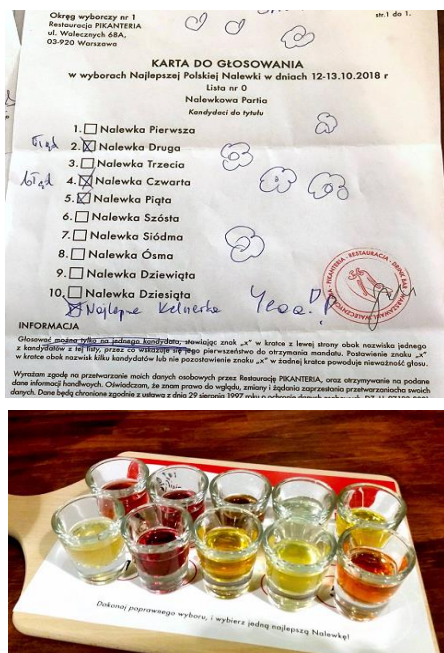 Okręg wyborczy nr 1
str.1 do 1.
Restauracja PIKANTERIA
ul. Walecznych 68A,
03-920 Warszawa
KARTA DO GŁOSOWANIA
w wyborach Najlepszej Polskiej Nalewki w dniach 12-13.10.2018 r
Lista nr 0
Nalewkowa Partia
Kandydaci do tytułu
1. Nalewka Pierwsza
błąd 2. Nalewka Druga
3. Nalewka Trzecia
błąd 4. Nalewka Czwarta
5. Nalewka Piąta
6. Nalewka Szósta
7. Nalewka Siódma
8. Nalewka Ósma
9. Nalewka Dziewiąta
10. Nalewka Dziesiąta
Najlepsza Kelnerka
INFORMACJA
Głosować można tylko na jednego kandydata, stawiając znak „x” w kratce z lewej strony obok nazwiska jednego
z kandydatów z tej listy, przez co wskazuje się jego pierwszeństwo do otrzymania mandatu. Postawienie znaku „x”
w kratce obok nazwisk kilku kandydatów lub nie pozostawienie znaku „x” w żadnej kratce powoduje nieważność głosu.
Wyrażam zgodę na przetwarzanie moich danych osobowych przez Restaurację PIKANTERIA, oraz otrzymywanie na podane
dane informacji handlowych. Oświadczam, że znam prawo do wglądu, zmiany i żądania zaprzestania przetwarzania swoich
danych. Dane będą chronione zgodnie z ustawą z dnia 29 sierpnia 1997 roku o ochronie danych osobowych
PIKANTERIA - RESTAURACJA - DRINK BAR
Dokonaj poprawnego wyboru, i wybierz jedną najlepszą Nalewkę!